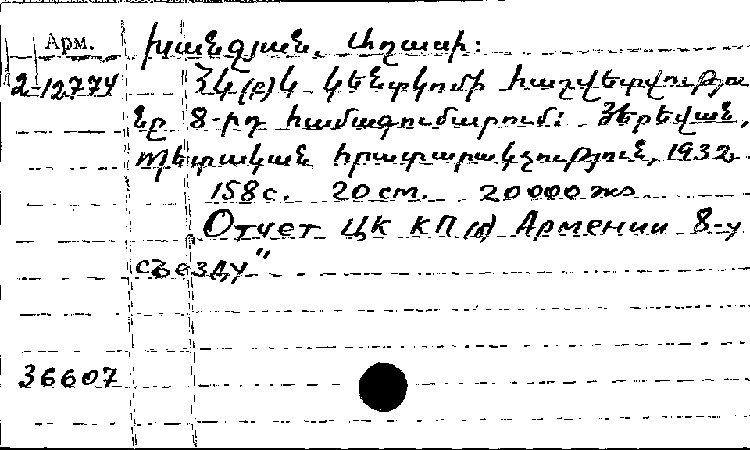 Арм.
Խանջյան, Աղասի:
2-12774
ՀԿ(բ)Կ կենտկոմի հաշվետվությու
նը 8-րդ համագումարում: Յերեվան,
Պետական հրատարակչություն, 1932.
158 с. 20 cm. 20000 экз
Отчет ЦК КП(б) Армении 8-у
съезду"
36607